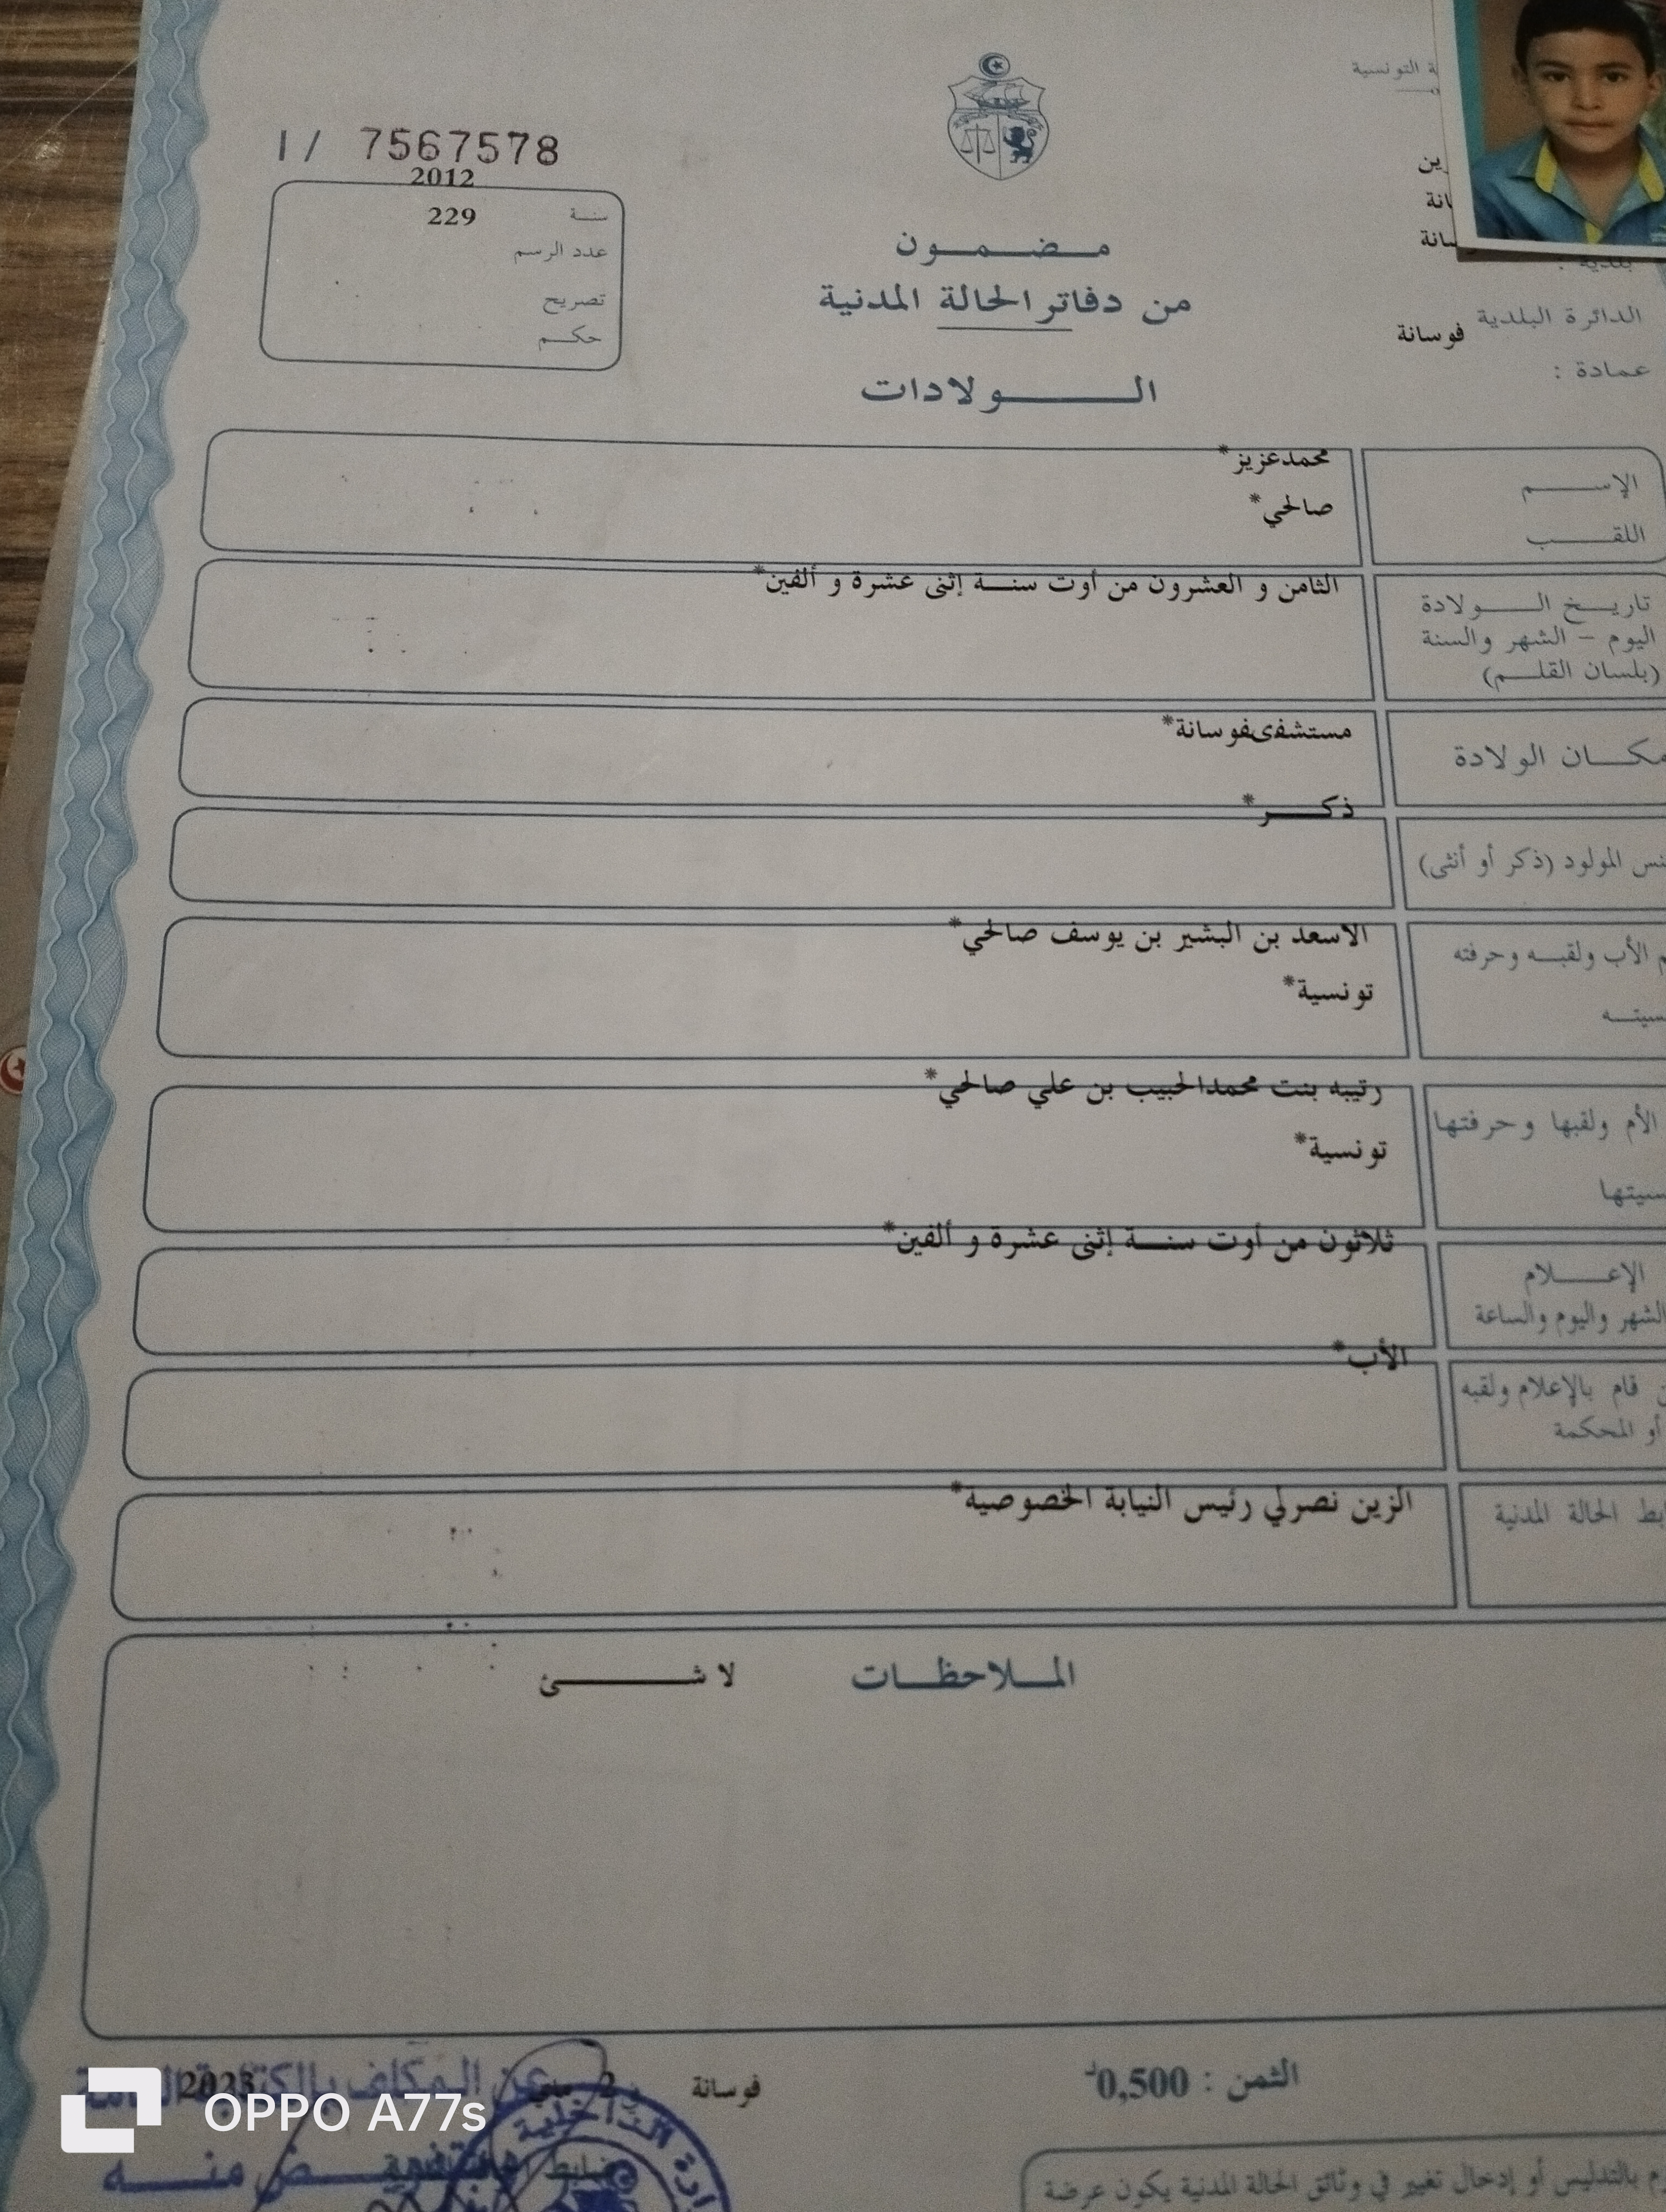 التونسية
1/ 7567578
2012
سنة 229
عدد الرسم
تصريح
حكم
مضمون
من دفاتر الحالة المدنية
الولادات
بلدية :
الدائرة البلدية فوسانة
عمادة :
الإسم محمدعزيز*
اللقب صالحي*
تاريخ الولادة الثامن و العشرون من أوت سنة إثنى عشرة و ألفين*
اليوم – الشهر والسنة
(بلسان القلم)
مكان الولادة مستشفىفوسانة*
ذكر*
المولود (ذكر أو أنثى)
الأب ولقبه وحرفته الاسعد بن البشير بن يوسف صالحي*
تونسية*
رتيبه بنت محمدالحبيب بن علي صالحي*
الأم ولقبها وحرفتها
تونسية*
ثلاثون من أوت سنة إثنى عشرة و ألفين*
الإعلام
الشهر واليوم والساعة
الأب*
قام بالإعلام ولقبه
أو المحكمة
الحالة المدنية الزين نصرلي رئيس النيابة الخصوصية*
الملاحظات لا شئ
الثمن : 0,500د
فوسانة
عن المكلف بالكتابة العامة
بالتدليس أو إدخال تغيير في وثائق الحالة المدنية يكون عرضة
OPPO A77s